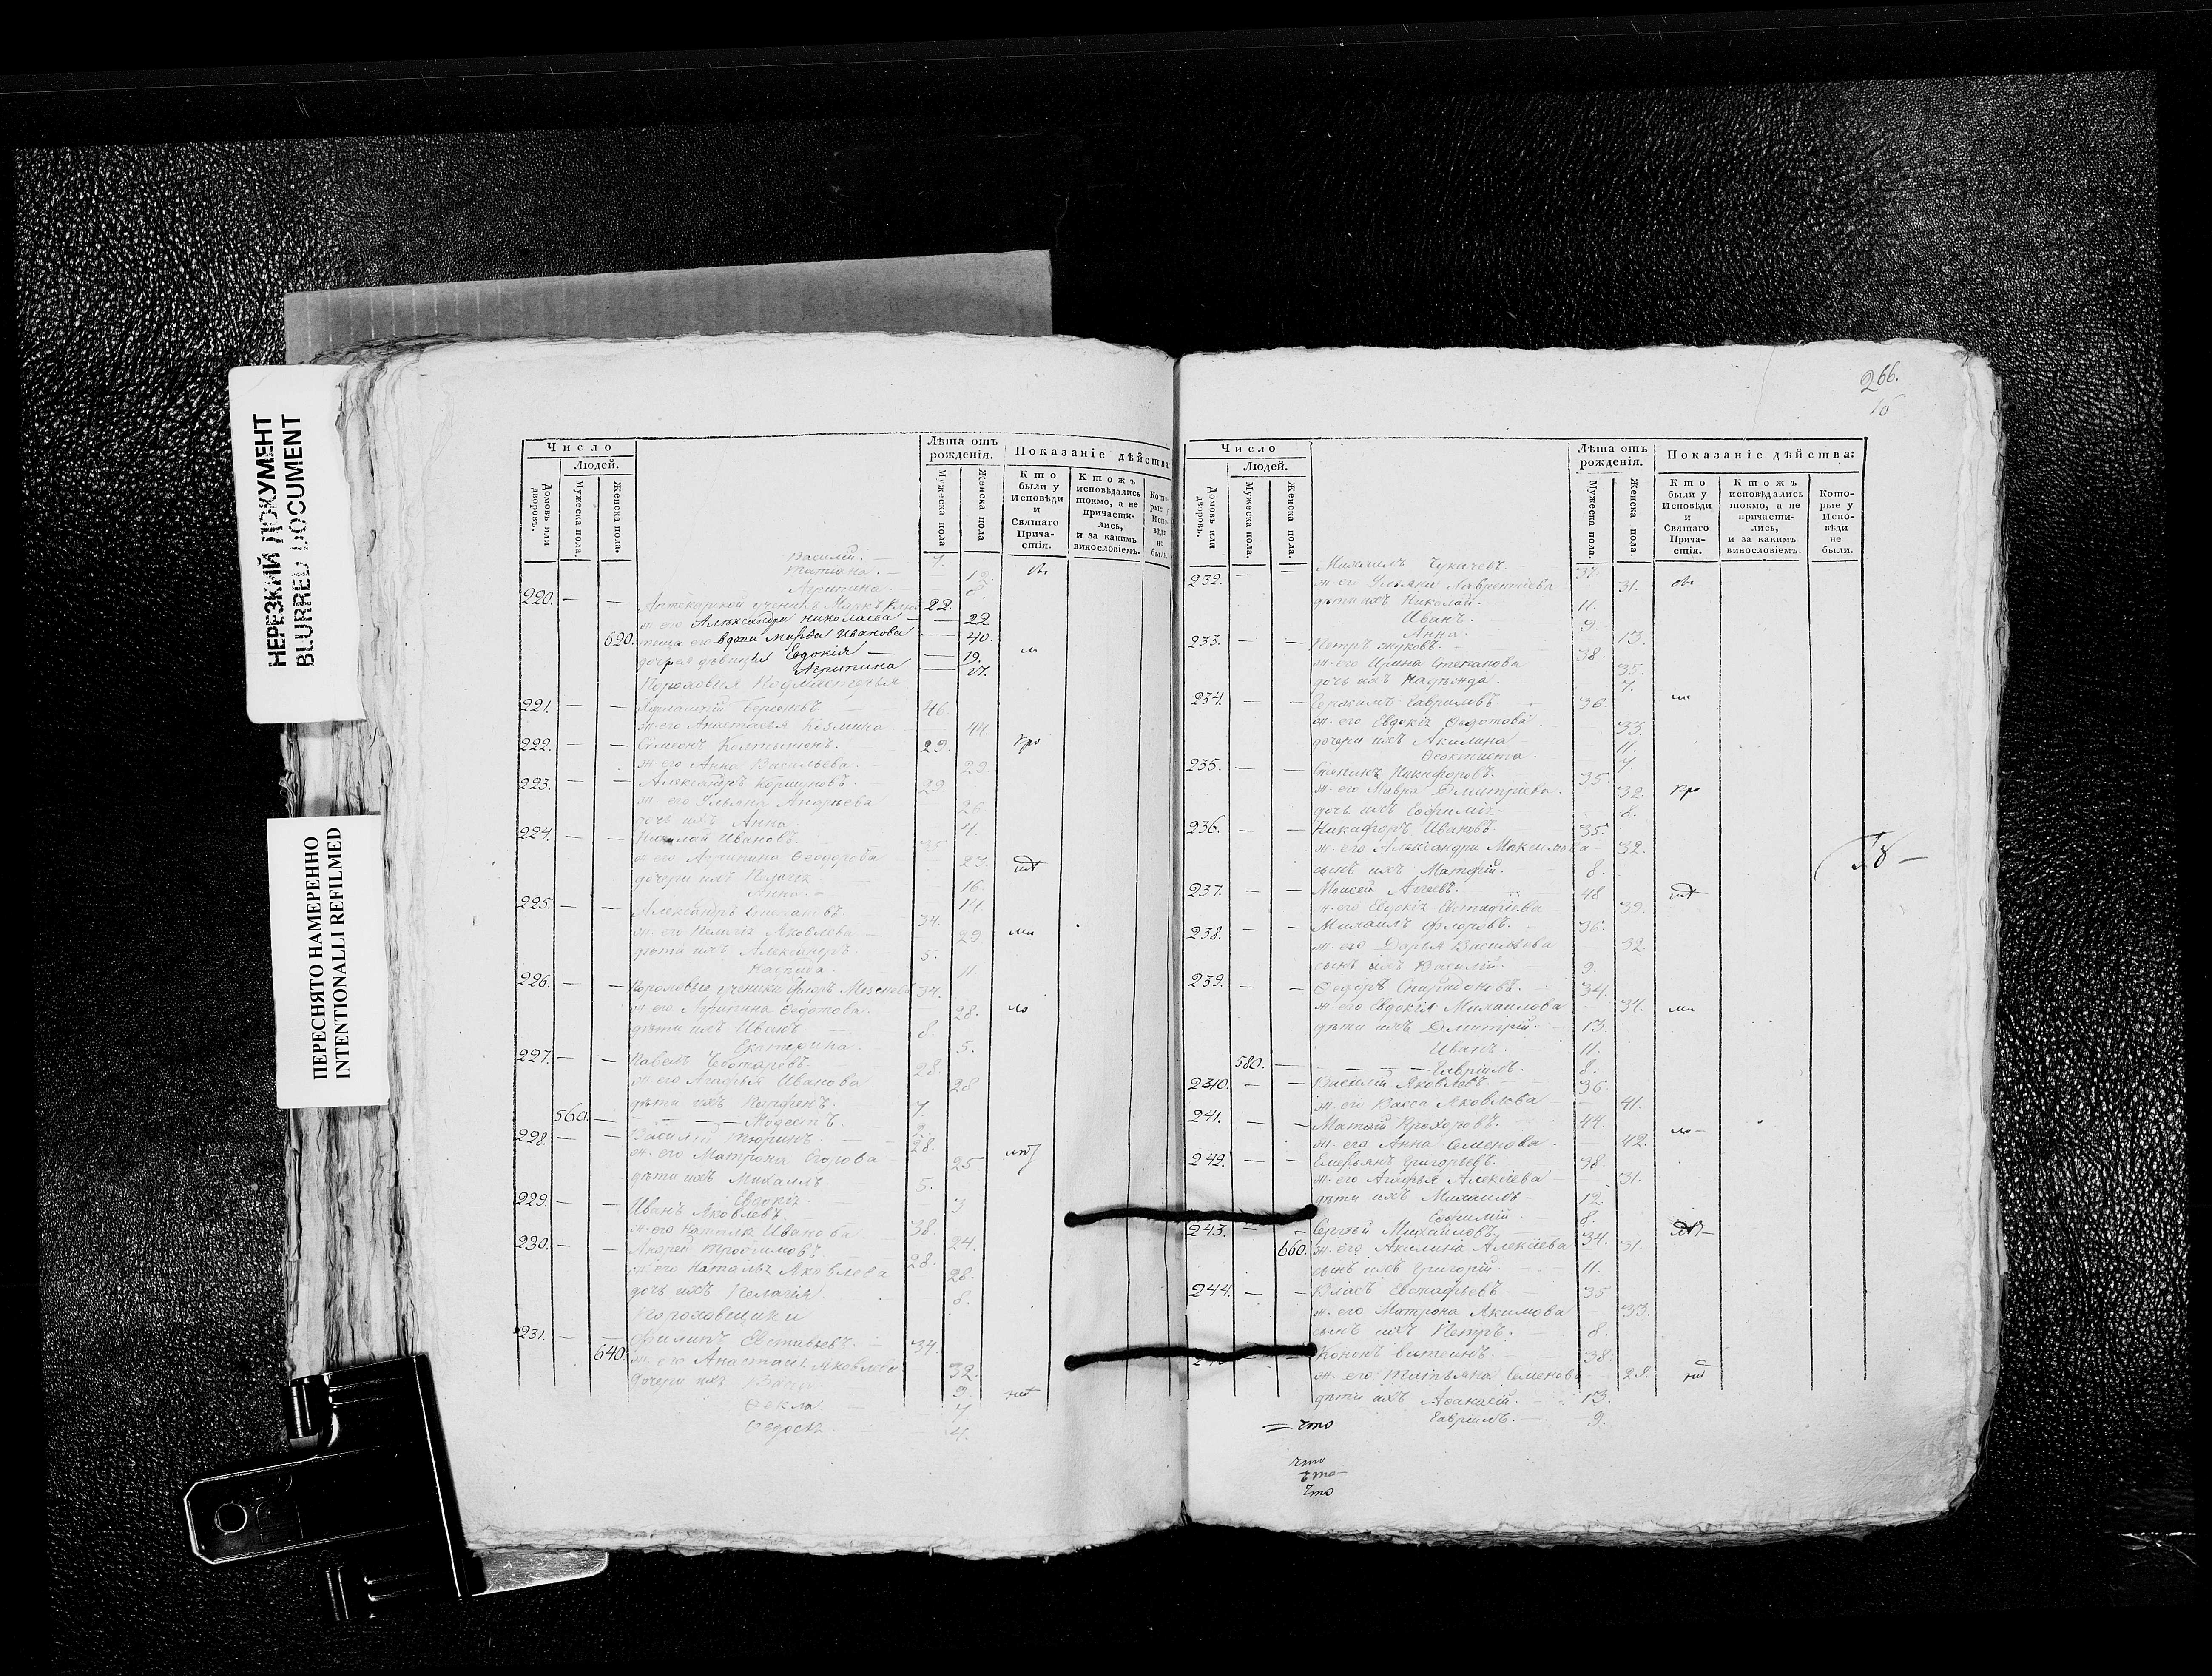 НЕРЕЗКИЙ ДОКУМЕНТ
BLURRED DOCUMENT
ПЕРЕСНЯТО НАМЕРЕННО
INTENTIONALLI REFILMED
Число
Людей.
Домовъ или дворовъ.
Мужеска пола.
Женска пола.
Лѣта отъ рожденія.
Мужеска пола
Женска пола
Показаніе дѣйства:
Кто были у Исповѣди и Святаго Прича-стія.
Ктожъ исповѣдались токмо, а не причасти-лись, и за какимъ винословіемъ.
Кото-рые у Испо-вѣди не были.
Василій. 7.
Татіана. 12.
Агрипина 8.
220. Аптекарской ученикъ Маркъ 22.
ж его Александра Николаева 22
620. теща его вдова Марѳа Иванова 40.
дочери дѣвицы Евдокія 19.
Агрипина
Пороховыя Подмастерья
221. 46.
ж его Анастасья Козмина 44.
222. Симеонъ 29.
ж его Анна Васильева 29
223. Александръ Коршуновъ 29.
ж его Ульяна Андреева 26
дочь ихъ Анна 4.
224. Николай Ивановъ 35
ж его Агрипина Ѳеодорова 23.
дочери ихъ Пелагія 16.
Анна 14
225. Александръ Степановъ 34.
ж его Пелагія Яковлева 29
дѣти ихъ Александръ 5.
11.
226. Пороховые ученики Флоръ 34.
ж его Агрипина Ѳедотова 28.
дѣти ихъ Иванъ 8.
Екатерина. 5.
227. Павелъ Чеботаревъ 28.
ж его Агафья Иванова 28
дѣти ихъ Парфенъ 7.
560. Модестъ 2.
228. Василій Тюринъ 28.
ж его Матрона Егорова 25
дѣти ихъ Михаилъ 5.
Евдокія 3
229. Иванъ Яковлевъ 38
ж его Наталья Иванова 24.
230. Андрей Трофимовъ 28.
ж его Наталья Яковлева 28.
дочь ихъ Пелагія 8.
Пороховщики
231. Филипъ Евстафьевъ 34.
640. ж его Анастасія Яковлева 32.
дочери ихъ 9.
Ѳекла 7
Ѳедосья 4.
266.
10
Число
Людей.
Домовъ или дворовъ.
Мужеска пола.
Женска пола.
Лѣта отъ рожденія.
Мужеска пола.
Женска пола.
Показаніе дѣйства:
Кто были у Исповѣди и Святаго Прича-стія.
Ктожъ исповѣдались токмо, а не причасти-лись, и за какимъ винословіемъ.
Кото-рые у Испо-вѣди не были.
232. Михаилъ Чукачевъ 37.
ж его Ульяна Лаврентіева 31.
дѣти ихъ Николай 11.
Иванъ 9.
Анна 13.
233. Петръ Жуковъ 38.
ж его Ирина Степанова 35.
дочь ихъ Надежда 7.
234. Герасимъ Гавриловъ 36.
ж его Евдокія Ѳедотова 33.
дочери ихъ Акилина 11.
Ѳеоктиста 7.
235. Степанъ Никифоровъ 35.
ж его Мавра Дмитріева 32.
дочь ихъ Евфимія 8.
236. Никифоръ Ивановъ 35.
ж его Александра Максимова 32.
сынъ ихъ Матфій 8.
237. Моисей Агеевъ 48
ж его Евдокія Евстафіева 39.
238. Михаилъ Флоровъ 36.
ж его Дарья Васильева 32.
сынъ ихъ Василій 9.
239. Ѳедоръ Спиридоновъ 34.
ж его Евдокія Михаилова 34.
дѣти ихъ Дмитрій 13.
Иванъ 11.
580. Гавріилъ 8.
240. Василій Яковлевъ 36.
ж его Васса Яковлева 41.
241. Матвій Прохоровъ 44.
ж его Анна Семенова 42.
242. Емельянъ Григорьевъ 38.
ж его Агафья Алексіева 31.
дѣти ихъ Михаилъ 12
Евфимій 8.
243. Сергѣй Михаиловъ 34.
660. ж его Акилина Алексіева 31.
сынъ ихъ Григорій 11.
244. Власъ Евстафьевъ 35
ж его Матрона Акимова 33.
сынъ ихъ Петръ 8.
Кононъ 38.
ж его Татьяна Семенова 28.
дѣти ихъ Аѳанасій 13.
Гавріилъ 9.
что
что
что
что